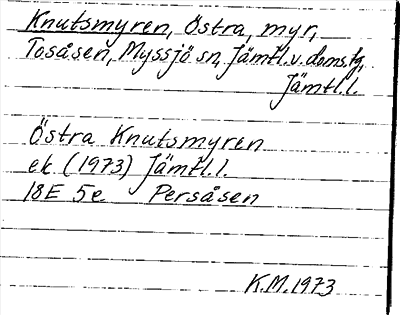 Knutsmyren, Östra, myr,
Tosåsen, Myssjö sn, Jämtl.v.doms.tg,
Jämtl.l.
Östra Knutsmyren
ek (1973) Jämtl.l.
18E 5e Persåsen
K.M.1973